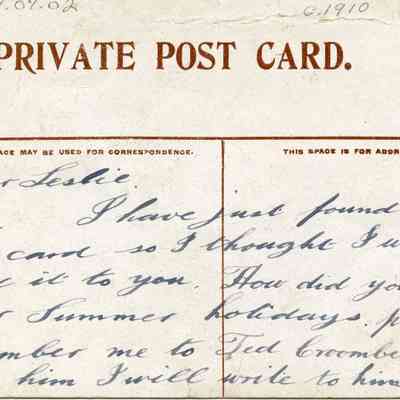 .07.02 c.1910
PRIVATE POST CARD.
ACE MAY BE USED FOR CORRESPONDENCE. THIS SPACE IS FOR ADDR
r Leslie.
I have just found
card so I thought I w
t it to you. How did yo
r Summer holidays. p
mber me to Ted Croombe
him I will write to him